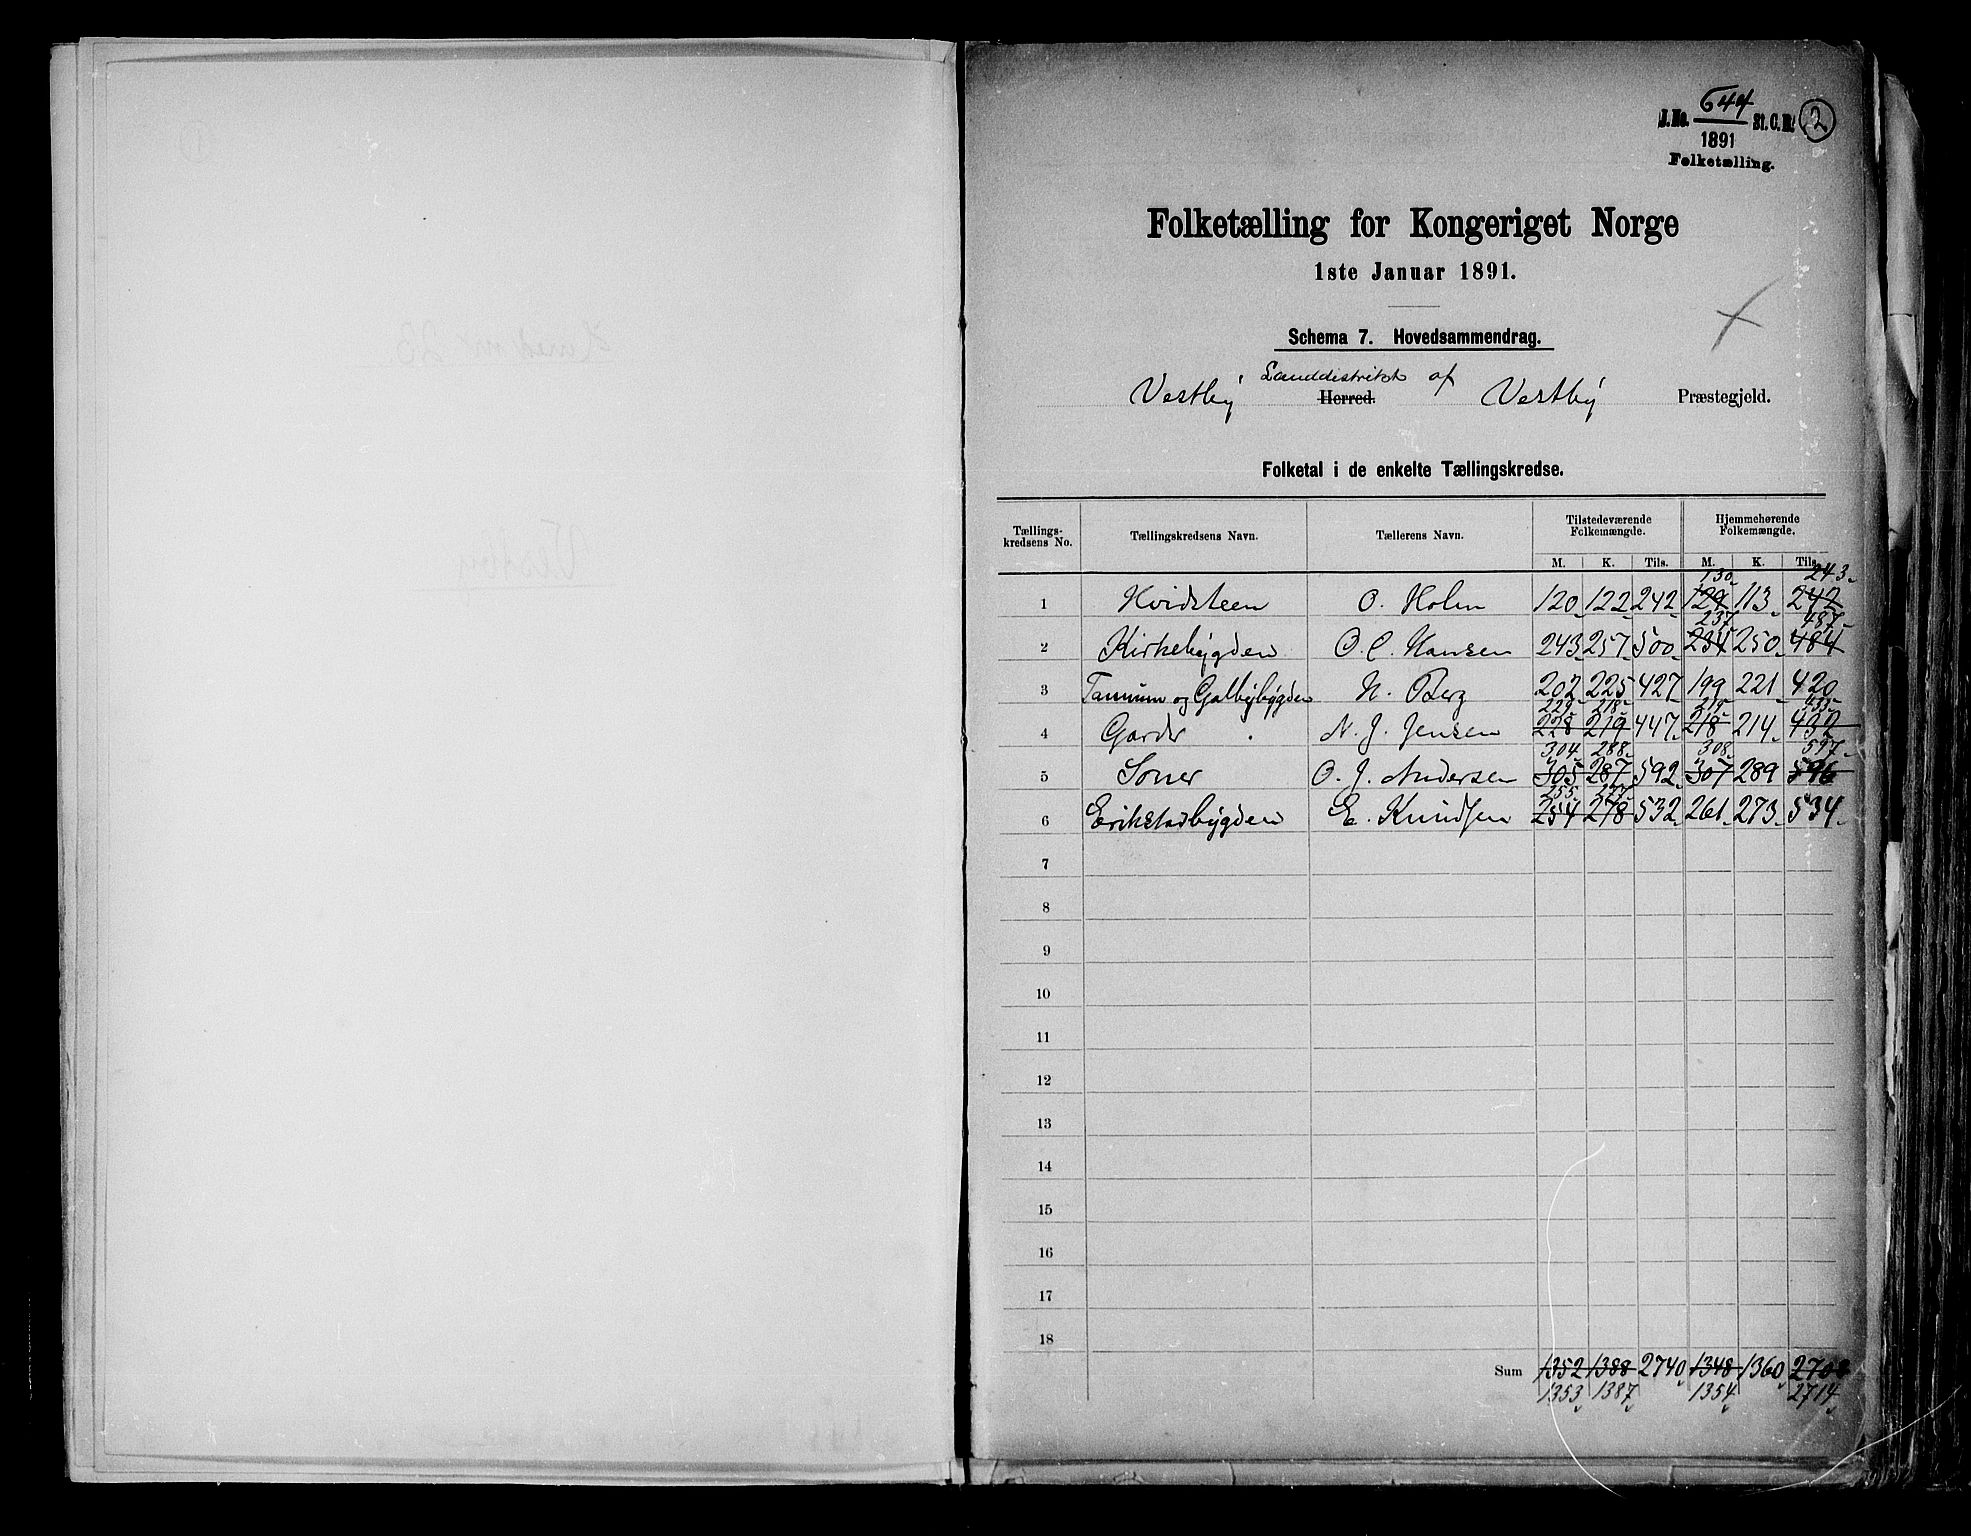 J. No. 644 St. C. B. 2
1891
Folketælling.
Folketælling for Kongeriget Norge
1ste Januar 1891.
Schema 7. Hovedsammendrag.
Landdistrikt af
Vestby Herred. Vestby Præstegjeld.
Folketal i de enkelte Tællingskredse.
Tællings-kredsens No. Tællingskredsens Navn. Tællerens Navn. Tilstedeværende Folkemængde. Hjemmehørende Folkemængde.
M. K. Tils. M. K. Tils.
130 243
1 Hvidsteen O. Holm 120 122 242 129 113 242
237 487
2 Kirkebygden O. C. Hansen 243 257 500 234 250 484
3 Tannum og Galbybygden N. Berg 202 225 427 199 221 420
229 218 219 433
4 Garder N. J. Jensen 228 219 447 218 214 432
304 288 308 597
5 Soner O. J. Andersen 305 287 592 307 289 596
255 277
6 Erikstadbygden E. Knudsen 254 278 532 261 273 534
7
8
9
10
11
12
13
14
15
16
17
18
Sum 1352 1388 2740 1348 1360 2708
1353 1387 1354 2714